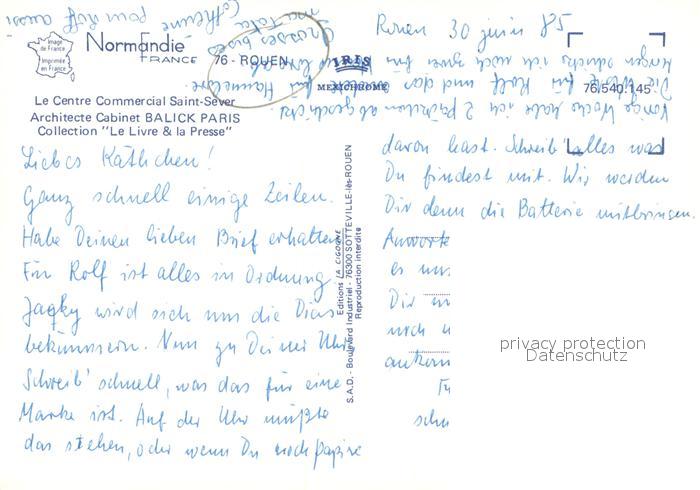 Rouen 30 juin 85
Image
de France
Imprimée
en France
Normandie
FRANCE
76 - ROUEN
IRIS
MEXICHROME
76.540.145
Le Centre Commercial Saint-Sever
Architecte Cabinet BALICK PARIS
Collection "Le Livre & la Presse"
Editions LA CIGOGNE
S.A.D. - Boulevard Industriel - 76300 SOTTEVILLE-lès-ROUEN
Reproduction interdite
Liebes Käthchen!
Ganz schnell einige Zeilen.
Habe Deinen lieben Brief erhalten.
Für Rolf ist alles in Ordnung.
Jacky wird sich um die Dias
bekümmern. Nun zu Deiner Uhr.
Schreib' schnell, was das für eine
Marke ist. Auf der Uhr müßte
das stehen, oder wenn Du noch Papiere
davon hast. Schreib' alles was
Du findest mit. Wir werden
Dir dann die Batterie mitbringen.
Antworte
es
Dir
noch
Vorige Woche habe ich 2 abgeschickt
für Rolf und das für Hannelore.
Morgen schicke ich noch zwei für
Grosses bises
Catherine pour Rolf aussi
privacy protection
Datenschutz